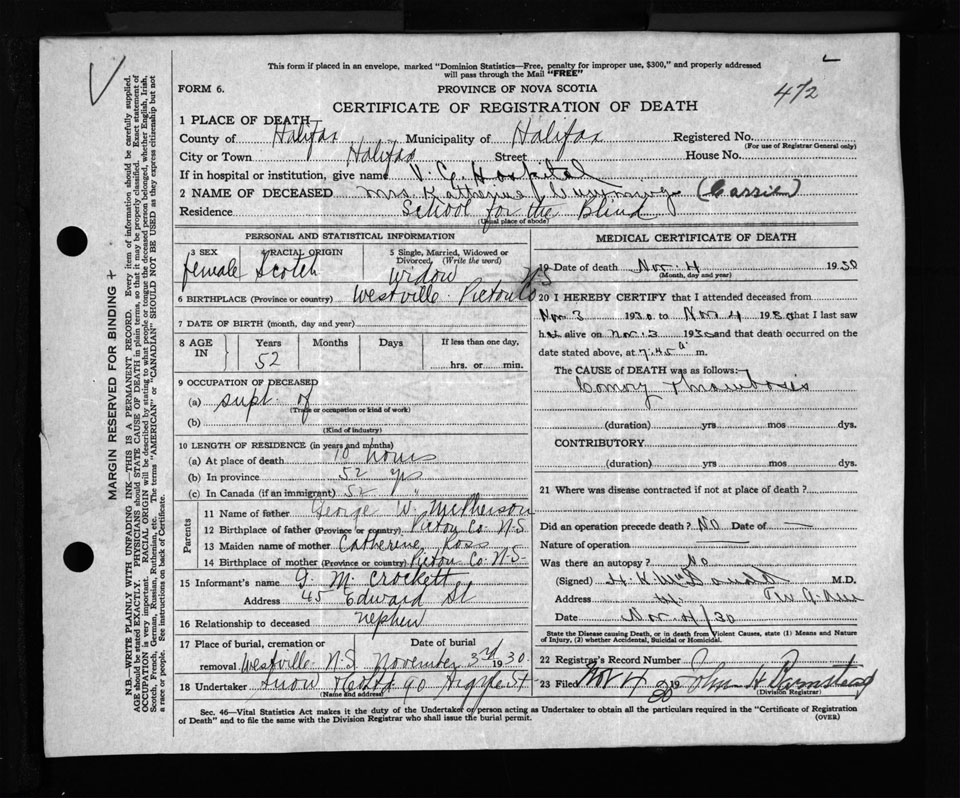 This form if placed in an envelope, marked "Dominion Statistics—Free, penalty for improper use, $300," and properly addressed
will pass through the Mail "FREE"
FORM 6.
PROVINCE OF NOVA SCOTIA
472
CERTIFICATE OF REGISTRATION OF DEATH
1 PLACE OF DEATH
County of Halifax Municipality of Halifax Registered No.
(For use of Registrar General only)
City or Town Halifax Street House No.
If in hospital or institution, give name V. G. Hospital
2 NAME OF DECEASED Mrs. Katherine (Cassie)
Residence School for the Blind
(Usual place of abode)
PERSONAL AND STATISTICAL INFORMATION
3 SEX 4 RACIAL ORIGIN 5 Single, Married, Widowed or
Divorced, (Write the word)
female Scotch widow
6 BIRTHPLACE (Province or country) Westville Pictou Co NS
7 DATE OF BIRTH (month, day and year)
8 AGE IN Years Months Days If less than one day,
52 hrs. or min.
9 OCCUPATION OF DECEASED
(a) supt. of
(Trade or occupation or kind of work)
(b)
(Kind of industry)
10 LENGTH OF RESIDENCE (in years and months)
(a) At place of death 10 hours
(b) In province 52 yrs
(c) In Canada (if an immigrant) 52 "
Parents
11 Name of father George W. McPherson
12 Birthplace of father (Province or country) Pictou Co. N.S.
13 Maiden name of mother Catherine Ross
14 Birthplace of mother (Province or country) Pictou Co. N.S.
15 Informant's name G. M. Crockett
Address 45 Edward St
16 Relationship to deceased nephew
17 Place of burial, cremation or Date of burial
removal Westville N.S. November 3rd 1930.
18 Undertaker Snow
(Name and address)
MEDICAL CERTIFICATE OF DEATH
19 Date of death Nov. 4 1930
(Month, day and year)
20 I HEREBY CERTIFY that I attended deceased from
Nov 3 1930 to Nov 4 1930 that I last saw
her alive on Nov. 3 1930 and that death occurred on the
date stated above, at 7.45 a. m.
The CAUSE of DEATH was as follows:
Thrombosis
(duration) yrs mos dys.
CONTRIBUTORY
(duration) yrs mos dys.
21 Where was disease contracted if not at place of death?
Did an operation precede death? No Date of —
Nature of operation —
Was there an autopsy? No
(Signed) H. K. McDonald M.D.
Address
Date Nov. 4/30
State the Disease causing Death, or in death from Violent Causes, state (1) Means and Nature
of Injury, (2) whether Accidental, Suicidal or Homicidal.
22 Registrar's Record Number
23 Filed Nov 4 1930 John H Barnstead
(Division Registrar)
Sec. 46—Vital Statistics Act makes it the duty of the Undertaker or person acting as Undertaker to obtain all the particulars required in the "Certificate of Registration
of Death" and to file the same with the Division Registrar who shall issue the burial permit.
(OVER)
MARGIN RESERVED FOR BINDING
N.B.—WRITE PLAINLY WITH UNFADING INK—THIS IS A PERMANENT RECORD. Every item of information should be carefully supplied.
AGE should be stated EXACTLY. PHYSICIANS should STATE CAUSE OF DEATH in plain terms, so that it may be properly classified. Exact statement of
OCCUPATION is very important. RACIAL ORIGIN will be described by stating to what people or tongue the deceased person belonged, whether English, Irish,
Scotch, French, German, Russian, Ruthenian, etc. The terms "AMERICAN" or "CANADIAN" SHOULD NOT BE USED as they express citizenship but not
a race or people. See instructions on back of Certificate.